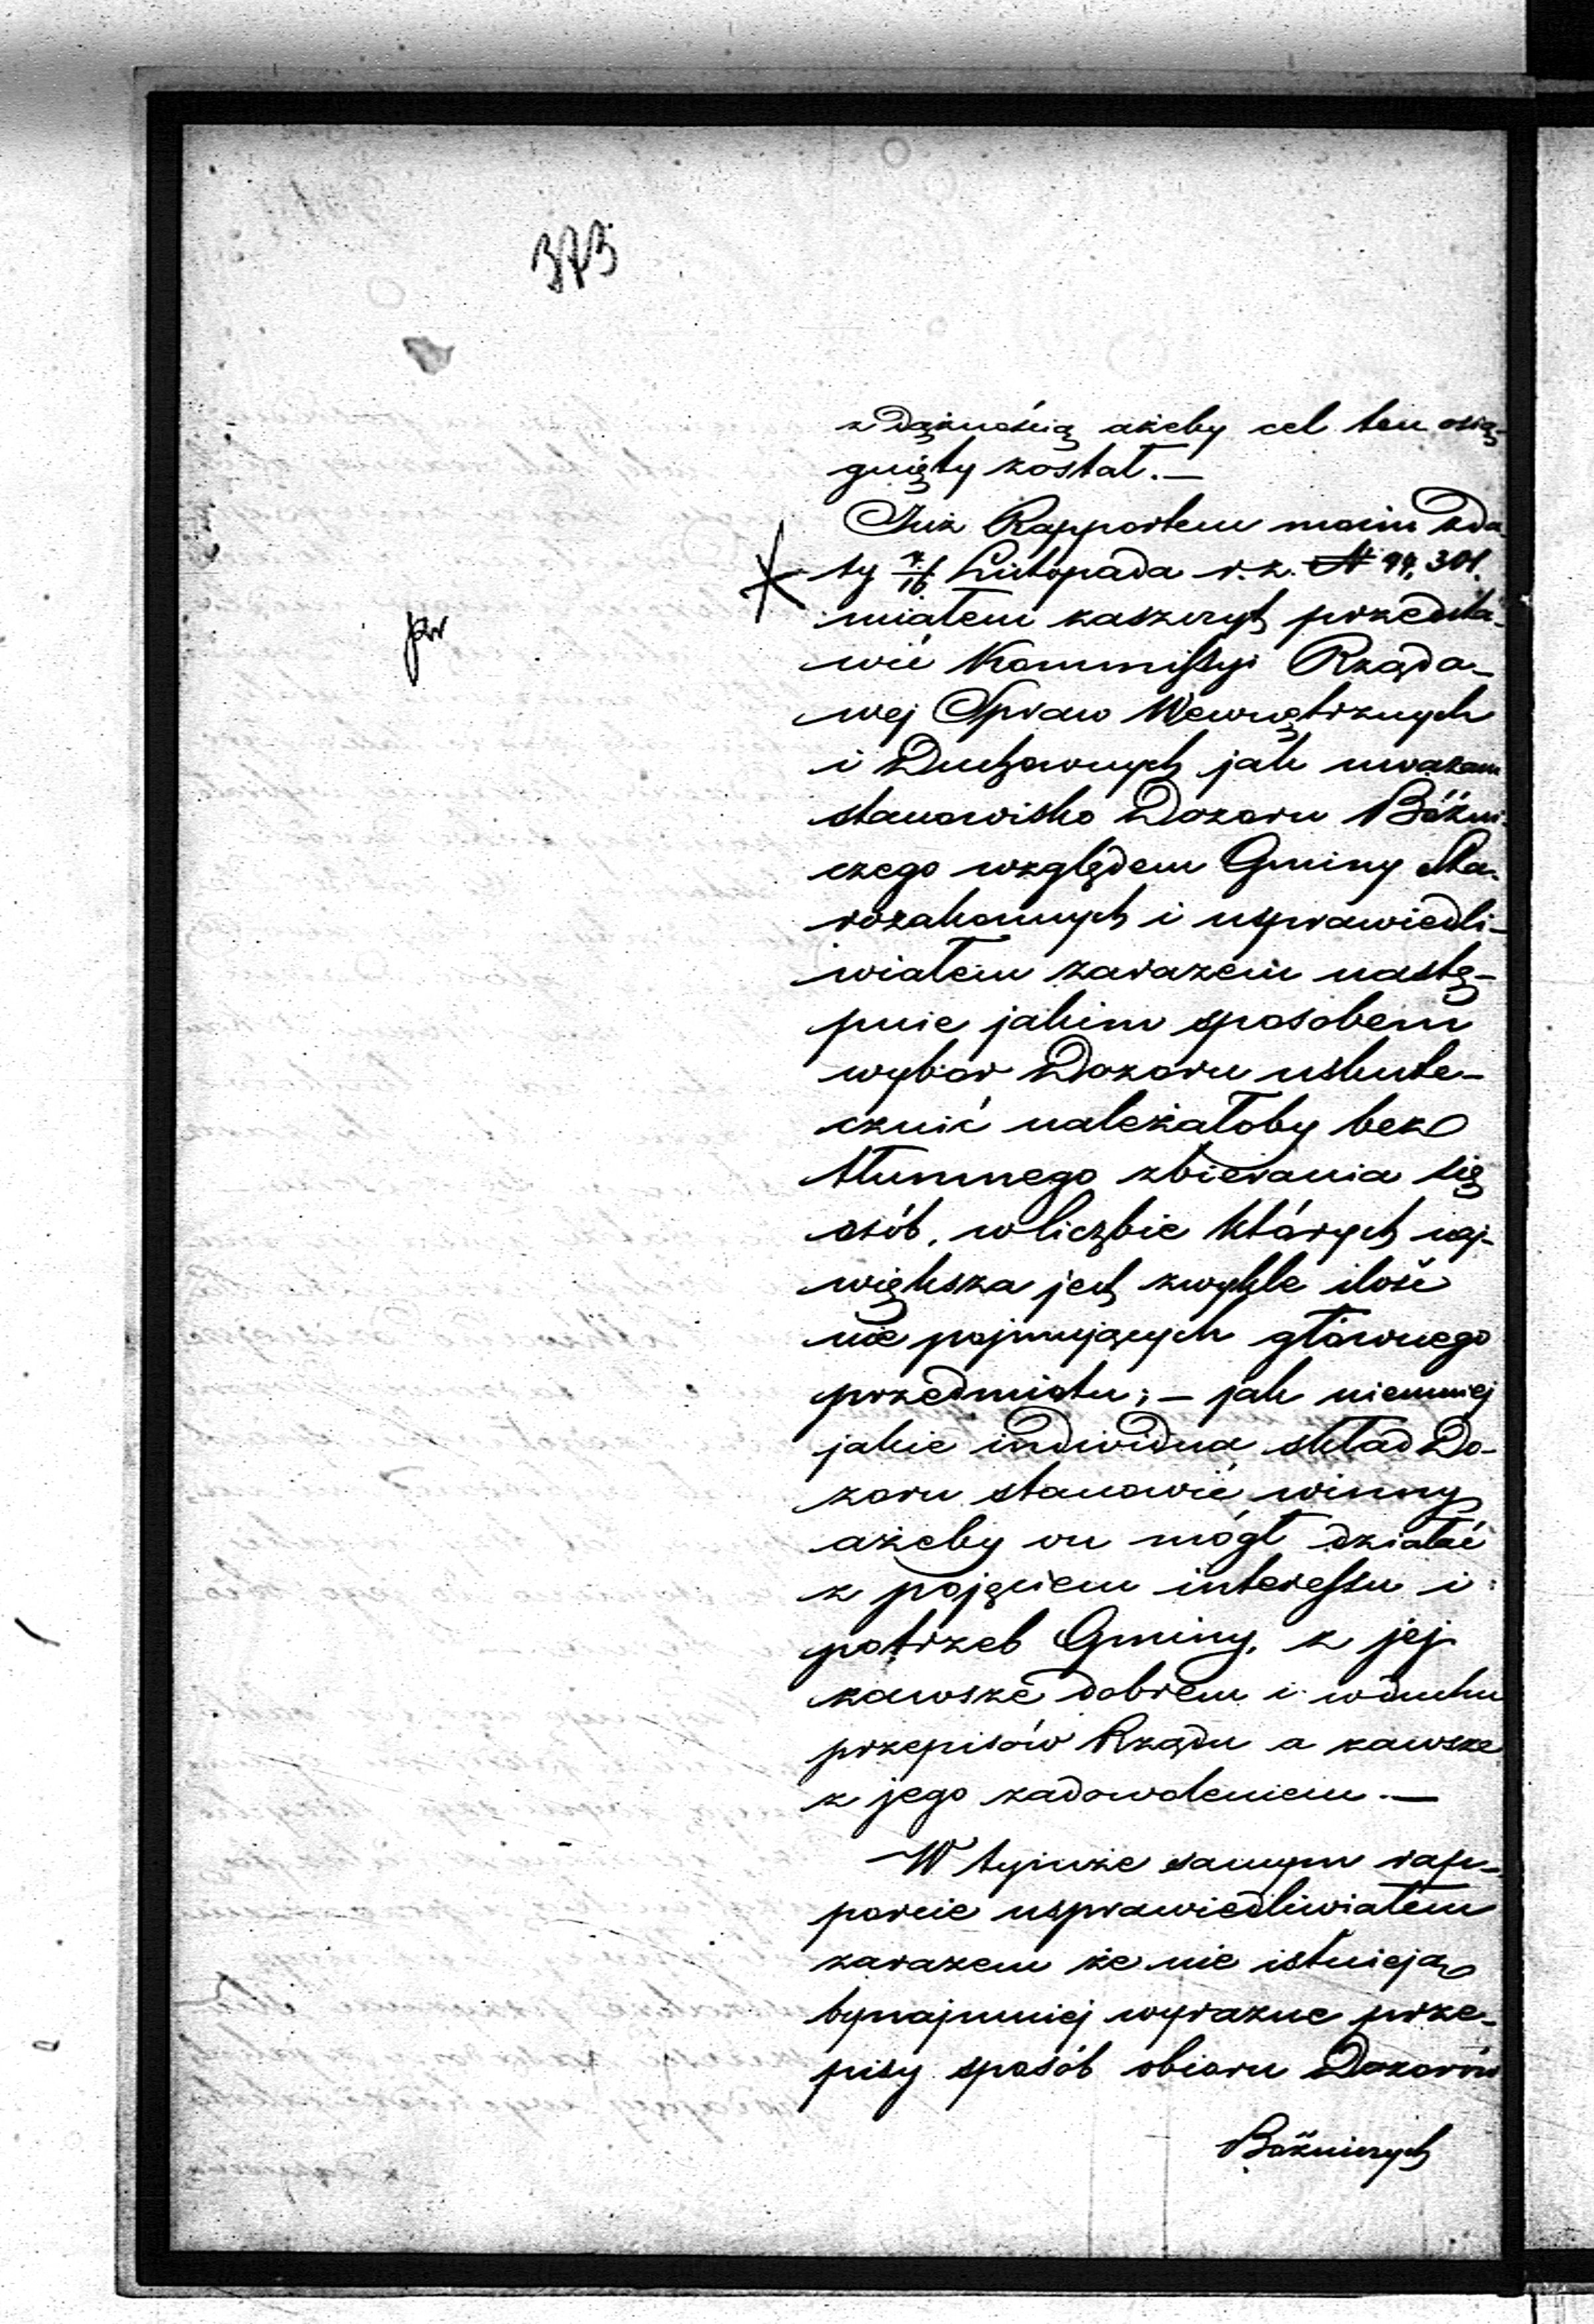 373
z dążnością ażeby cel ten osią-
gnięty został.—
Już Rapportem moim z da-
ty 4/16 Listopada r. z. N 94,301.
miałem zaszczyt przedsta-
pr
wić Kommissyi Rządo-
wej Spraw Wewnętrznych
i Duchownych jak uważam
stanowisko Dozoru Bóźni-
czego względem Gminy Sta-
rozakonnych i usprawiedli-
wiałem zarazem nastę-
pnie jakim sposobem
wybor Dozoru uskute-
cznić należałoby bez
tłumnego zbierania się
osób, w liczbie których naj-
większa jest zwykle ilość
nie pojmujących głównego
przedmiotu; — jak niemniej
jakie individua skład Do-
zoru stanowić winny
ażeby on mógł działać
z pojęciem interessu i
potrzeb Gminy, z jej
zawsze dobrem i w duchu
przepisów Rządu a zawsze
z jego zadowoleniem.—
W tymże samym rap-
porcie usprawiedliwiałem
zarazem że nie istnieją
bynajmniej wyrazne prze-
pisy sposób obioru Dozorów
Bóżniczych